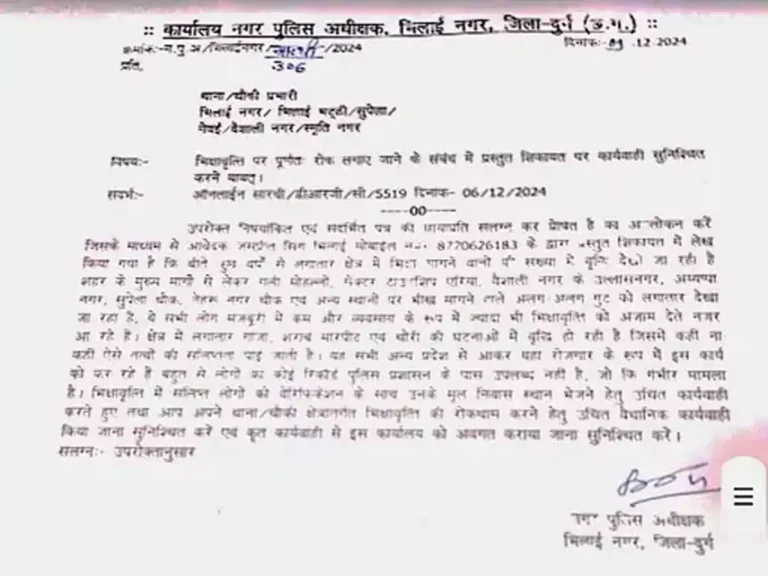 :: कार्यालय नगर पुलिस अधीक्षक, भिलाई नगर, जिला-दुर्ग (छ.ग.) ::
क्रमांक:-न.पु.अ/भिलाईनगर/ /2024 दिनांक:- .12.2024
प्रति, 306
थाना/चौकी प्रभारी
भिलाई नगर/ भिलाई भट्ठी/सुपेला/
नेवई/वैशाली नगर/स्मृति नगर
विषय:- भिक्षावृत्ति पर पूर्णतः रोक लगाए जाने के संबंध में प्रस्तुत शिकायत पर कार्यवाही सुनिश्चित
करने बाबत्।
संदर्भ:- ऑनलाईन सारथी/डीआरजी/सी/5519 दिनांक- 06/12/2024
-----00-----
उपरोक्त विषयांकित एवं संदर्भित पत्र की छायाप्रति संलग्न कर प्रेषित है का अवलोकन करें
जिसके माध्यम से आवेदक सिंग भिलाई मोबाईल 8770626183 के द्वारा प्रस्तुत शिकायत में लेख
किया गया है कि बीते कुछ वर्षों से लगातार क्षेत्र में भिक्षा मांगने वालों की संख्या में वृद्धि देखी जा रही है
शहर के मुख्य मार्गों से लेकर गली मोहल्लों, सेक्टर टाउनशिप एरिया, वैशाली नगर के उल्लासनगर, अय्यप्पा
नगर, सुपेला चौक, नेहरू नगर चौक एवं अन्य स्थानों पर भीख मांगने वाले अलग-अलग गुट को लगातार देखा
जा रहा है, ये सभी लोग मजबुरी में कम और व्यवसाय के रूप में ज्यादा भी भिक्षावृत्ति को अंजाम देते नजर
आ रहे है। क्षेत्र में लगातार गांजा, शराब मारपीट एवं चोरी की घटनाओं में वृद्धि हो रही है जिसमें कहीं ना
कहीं ऐसे लोगों की संलिप्तता पाई जाती है। यह सभी अन्य प्रदेश से आकर यहां रोजगार के रूप में इस कार्य
को कर रहे है बहुत से लोगों का कोई रिकॉर्ड पुलिस प्रशासन के पास उपलब्ध नही है, जो कि गंभीर मामला
है। भिक्षावृत्ति में संलिप्त लोगों को वेरिफिकेशन के साथ उनके मूल निवास स्थान भेजने हेतु उचित कार्यवाही
करते हुए तथा आप अपने थाना/चौकी क्षेत्रांतर्गत भिक्षावृत्ति की रोकथाम करने हेतु उचित वैधानिक कार्यवाही
किया जाना सुनिश्चित करें एवं कृत कार्यवाही से इस कार्यालय को अवगत कराया जाना सुनिश्चित करें।
संलग्न:- उपरोक्तानुसार
नगर पुलिस अधीक्षक
भिलाई नगर, जिला-दुर्ग